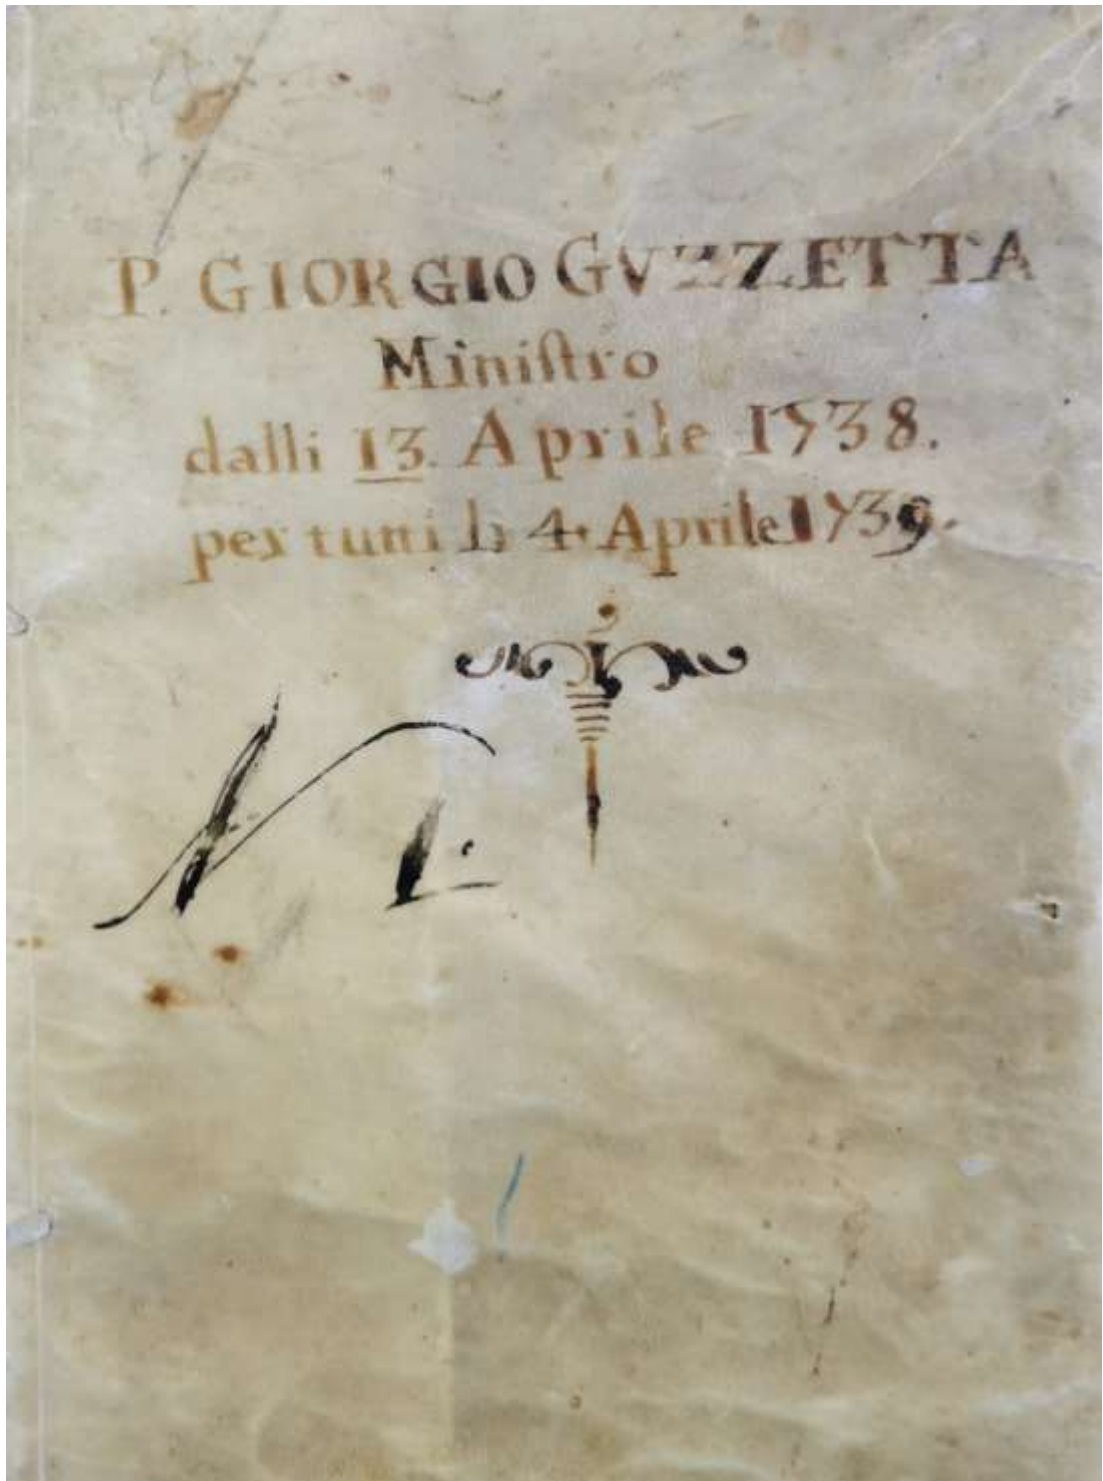 P. GIORGIO GVZZETTA
Miniſtro
dalli 13. Aprile 1738.
per tutti li 4. Aprile 1739.